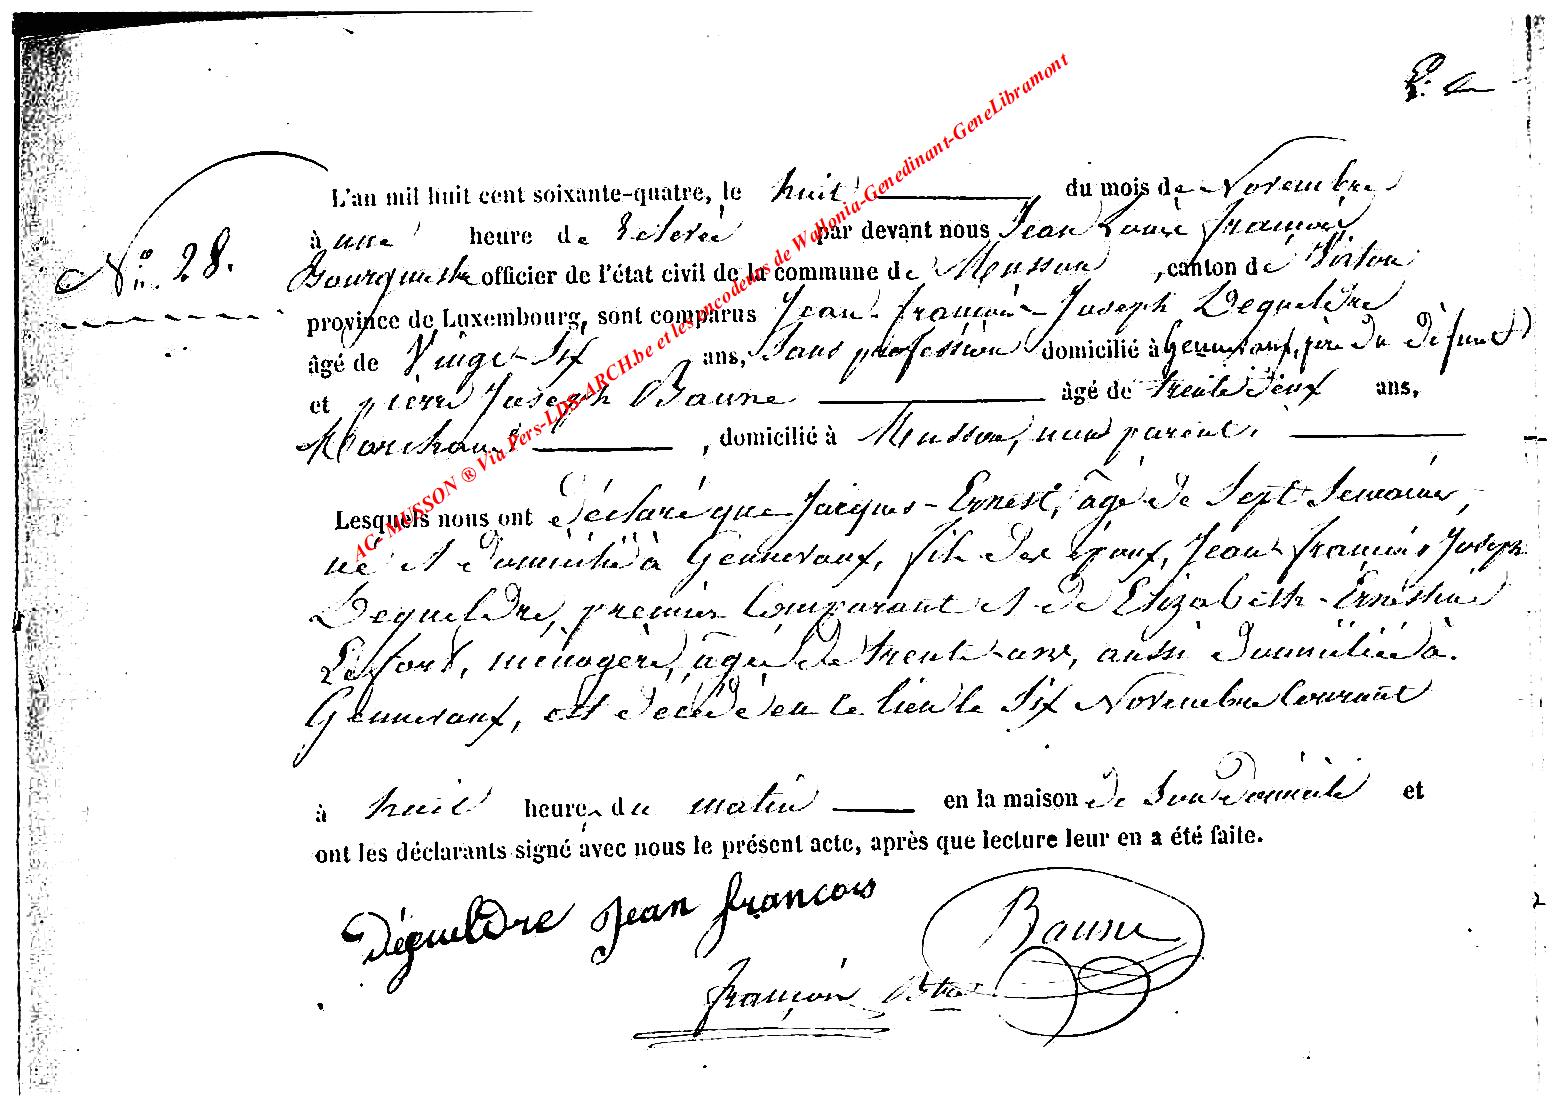 L'an mil huit cent soixante-quatre, le huit du mois de Novembre
à une heure de Relevée par devant nous Jean Louis François
No. 28.
officier de l'état civil de la commune de Musson, canton de Virton
province de Luxembourg, sont comparus Jean-François-Joseph Dequeldre
âgé de Vingt-Six ans, Sans profession domicilié à Gennevaux, père du défunt
et pierre Joseph Baune âgé de trente deux ans,
Marchand, domicilié à Musson, non parent.
Lesquels nous ont déclaré que Jacques-Ernest, âgé de Sept Semaines,
né et domicilié à Gennevaux, fils des époux, Jean-François Joseph
Dequeldre, premier Comparant et de Elizabeth-Ernestine
Lefort, ménagère, âgée de trente-ans, aussi domiciliée à
Gennevaux, est décédé en ce lieu le Six Novembre Courant
à huit heures du matin en la maison de Son domicile et
ont les déclarants signé avec nous le présent acte, après que lecture leur en a été faite.
Déqueldre Jean françois
Baune
François
AC-MUSSON ® Via Pers-LDS-ARCH.be et les encodeurs de Wallonia-Genedinant-GeneLibramont